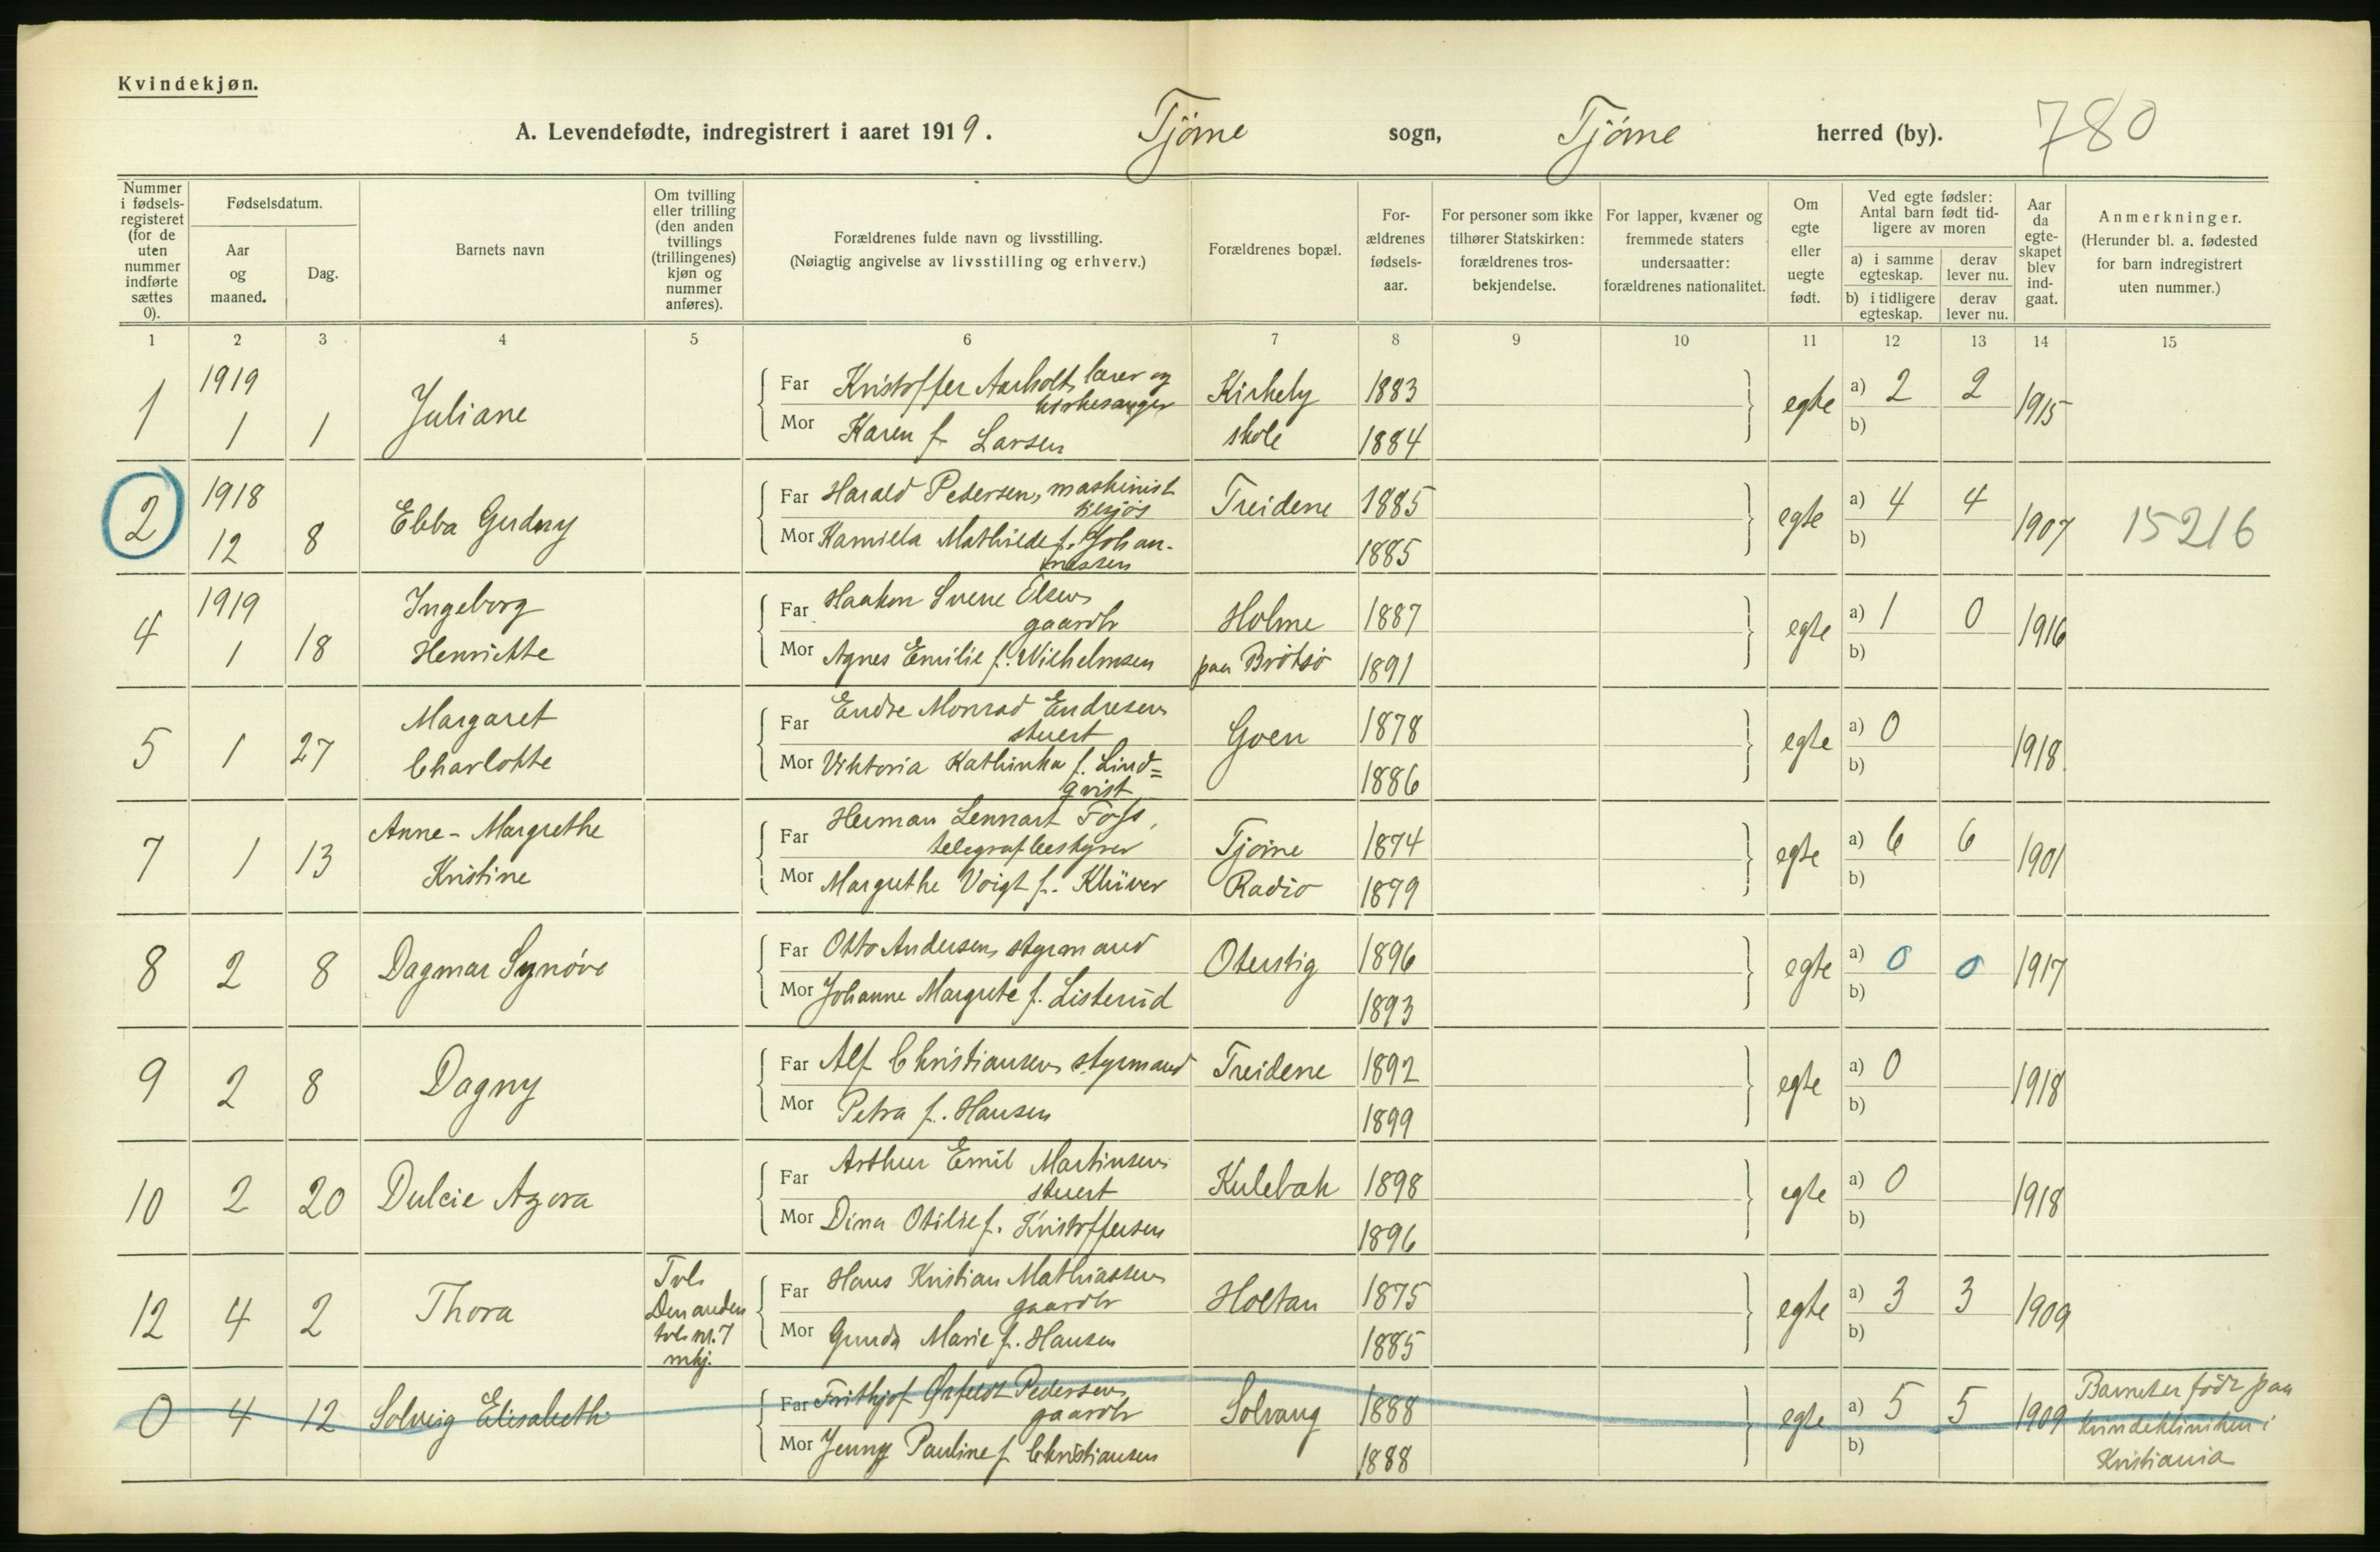 Kvindekjøn.
A. Levendefødte, indregistrert i aaret 1919. Tjöme sogn, Tjöme herred (by). 780
Nummer i fødsels-registeret (for de uten nummer indførte sættes 0).
Fødselsdatum.
Aar og maaned.
Dag.
Barnets navn
Om tvilling eller trilling (den anden tvillings (trillingenes) kjøn og nummer anføres).
Forældrenes fulde navn og livsstilling.
(Nøiagtig angivelse av livsstilling og erhverv.)
Forældrenes bopæl.
For-ældrenes fødsels-aar.
For personer som ikke tilhører Statskirken: forældrenes tros-bekjendelse.
For lapper, kvæner og fremmede staters undersaatter: forældrenes nationalitet.
Om egte eller uegte født.
Ved egte fødsler: Antal barn født tid-ligere av moren
a) i samme egteskap.
derav lever nu.
b) i tidligere egteskap.
derav lever nu.
Aar da egte-skapet blev ind-gaat.
Anmerkninger.
(Herunder bl. a. fødested for barn indregistrert uten nummer.)
1 2 3 4 5 6 7 8 9 10 11 12 13 14 15
1 1919 1 1 Juliane
Far Kristoffer Aarholt, lærer og kirkesanger Kirkely 1883
Mor Karen f. Larsen skole 1884
egte a) 2 2 b) 1915
2 1918 12 8 Ebba Gudny
Far Harald Pedersen, maskinist Treidene 1885
Mor Kamilla Mathilde f. Johan-nessen 1885
egte a) 4 4 b) 1907 15216
4 1919 1 18 Ingeborg Henriette
Far Haakon Sverre Olsen gaardbr Holme 1887
Mor Agnes Emilie f. Wilhelmsen paa Brötsö 1891
egte a) 1 0 b) 1916
5 1 27 Margaret Charlotte
Far Endre Monrad Endresen stuert Goen 1878
Mor Viktoria Kathinka f. Lind=qvist 1886
egte a) 0 b) 1918
7 1 13 Anne-Margrethe Kristine
Far Herman Lennart Foss, telegrafbestyrer Tjöme 1874
Mor Margrethe Voigt f. Klüver Radio 1879
egte a) 6 6 b) 1901
8 2 8 Dagmar Synöve
Far Otto Andersen, styrmand Oterstig 1896
Mor Johanne Margrete f. Listerud 1893
egte a) 0 0 b) 1917
9 2 8 Dagny
Far Alf Christiansen styrmand Treidene 1892
Mor Petra f. Hansen 1899
egte a) 0 b) 1918
10 2 20 Dulcie Azora
Far Arthur Emil Martinsen stuert Kulebak 1898
Mor Dina Otilie f. Kristoffersen 1896
egte a) 0 b) 1918
12 4 2 Thora Tvl. Den anden tvl. nr. 7 mkj.
Far Hans Kristian Mathiassen gaardbr Holtan 1875
Mor Gunda Marie f. Hansen 1885
egte a) 3 3 b) 1909
0 4 12 Solveig Elisabeth
Far Frithjof Pedersen gaardbr Solvang 1888
Mor Jenny Pauline f. Christiansen 1888
egte a) 5 5 b) 1909 Barnet er födt paa Kvindekliniken i Kristiania